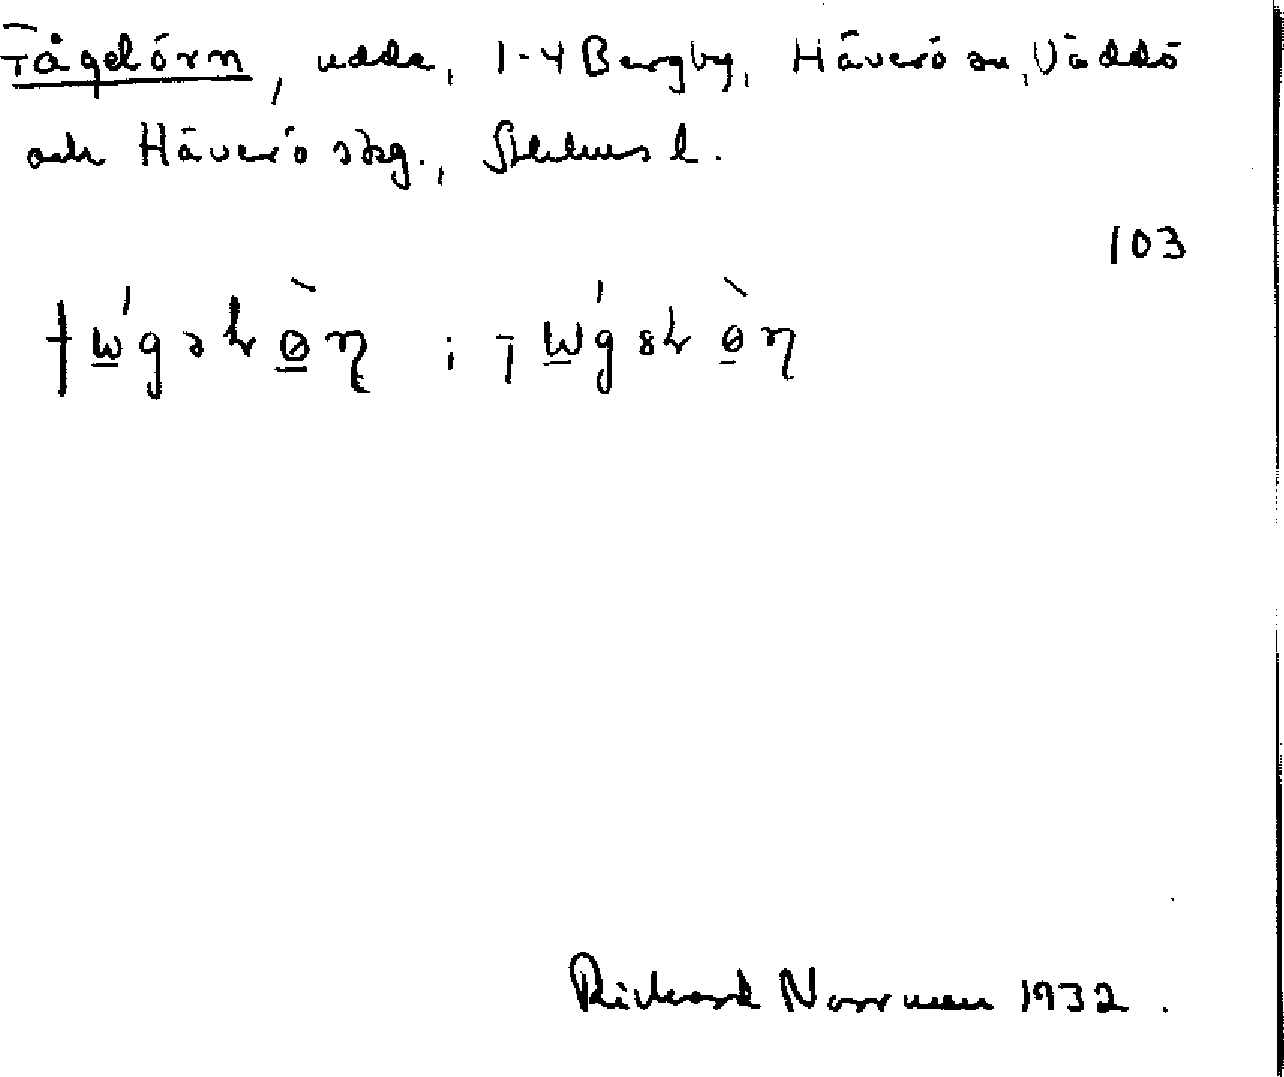 Tågelörn, udde, 1-4 Bergby, Häverö sn, Väddö
och Häverö skg., Sthlms l.
103
Richard Norrman 1932.